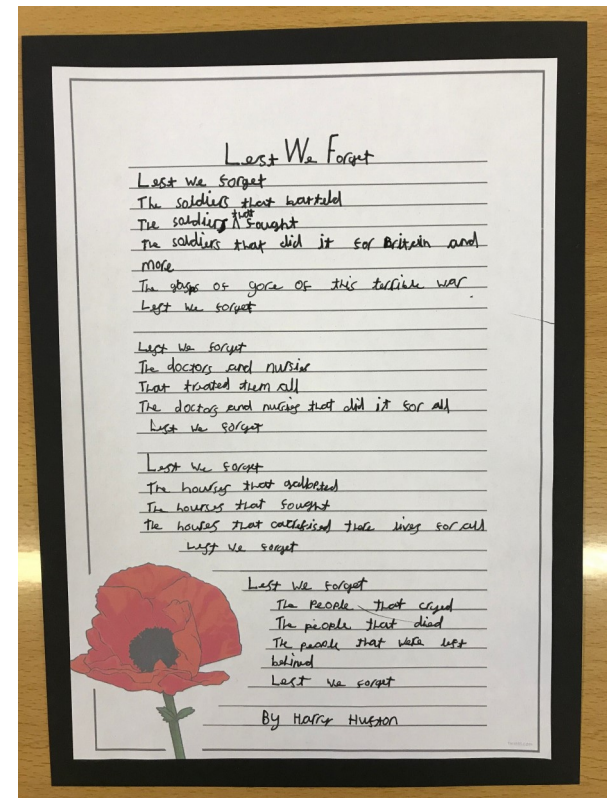 Lest We Forget
Lest we forget
The soldiers that batteld
The soldiers that fought
The soldiers that did it for Britein and
more
The of gore of this terrible war
Lest we forget
Lest we forget
The doctors and nursies
That treated them all
The doctors and nursies that did it for all
Lest we forget
Lest we forget
The hourses that gallbeted
The hourses that fought
The hourses that there lives for all
Lest we forget
Lest we forget
The people that cryed
The people that died
The people that were left
behined
Lest we forget
By Harry Huston